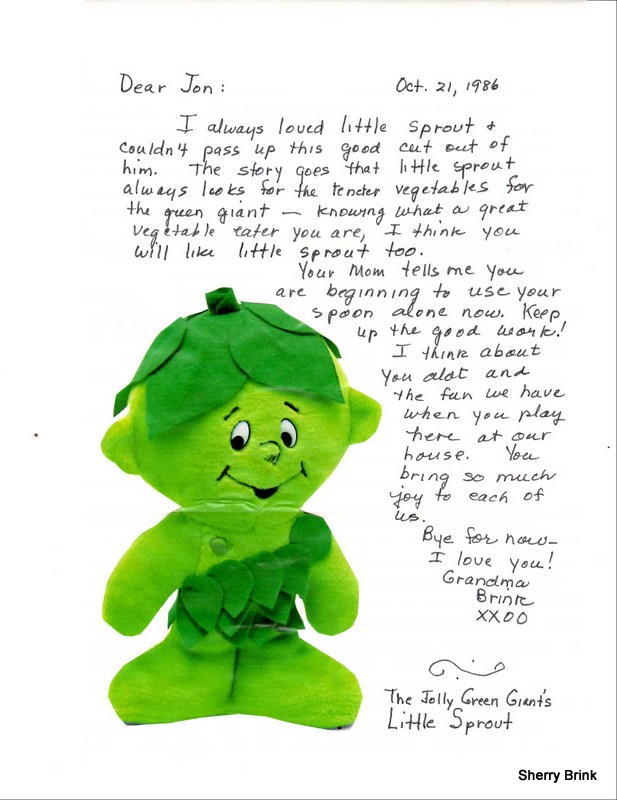 Dear Jon:
Oct. 21, 1986
I always loved little sprout &
couldn't pass up this good cut out of
him. The story goes that little sprout
always looks for the tender vegetables for
the green giant — knowing what a great
vegetable eater you are, I think you
will like little sprout too.
Your Mom tells me you
are beginning to use your
spoon alone now. Keep
up the good work!
I think about
you alot and
the fun we have
when you play
here at our
house. You
bring so much
joy to each of
us.
Bye for now—
I love you!
Grandma
Brink
XXOO
The Jolly Green Giant's
Little Sprout
Sherry Brink